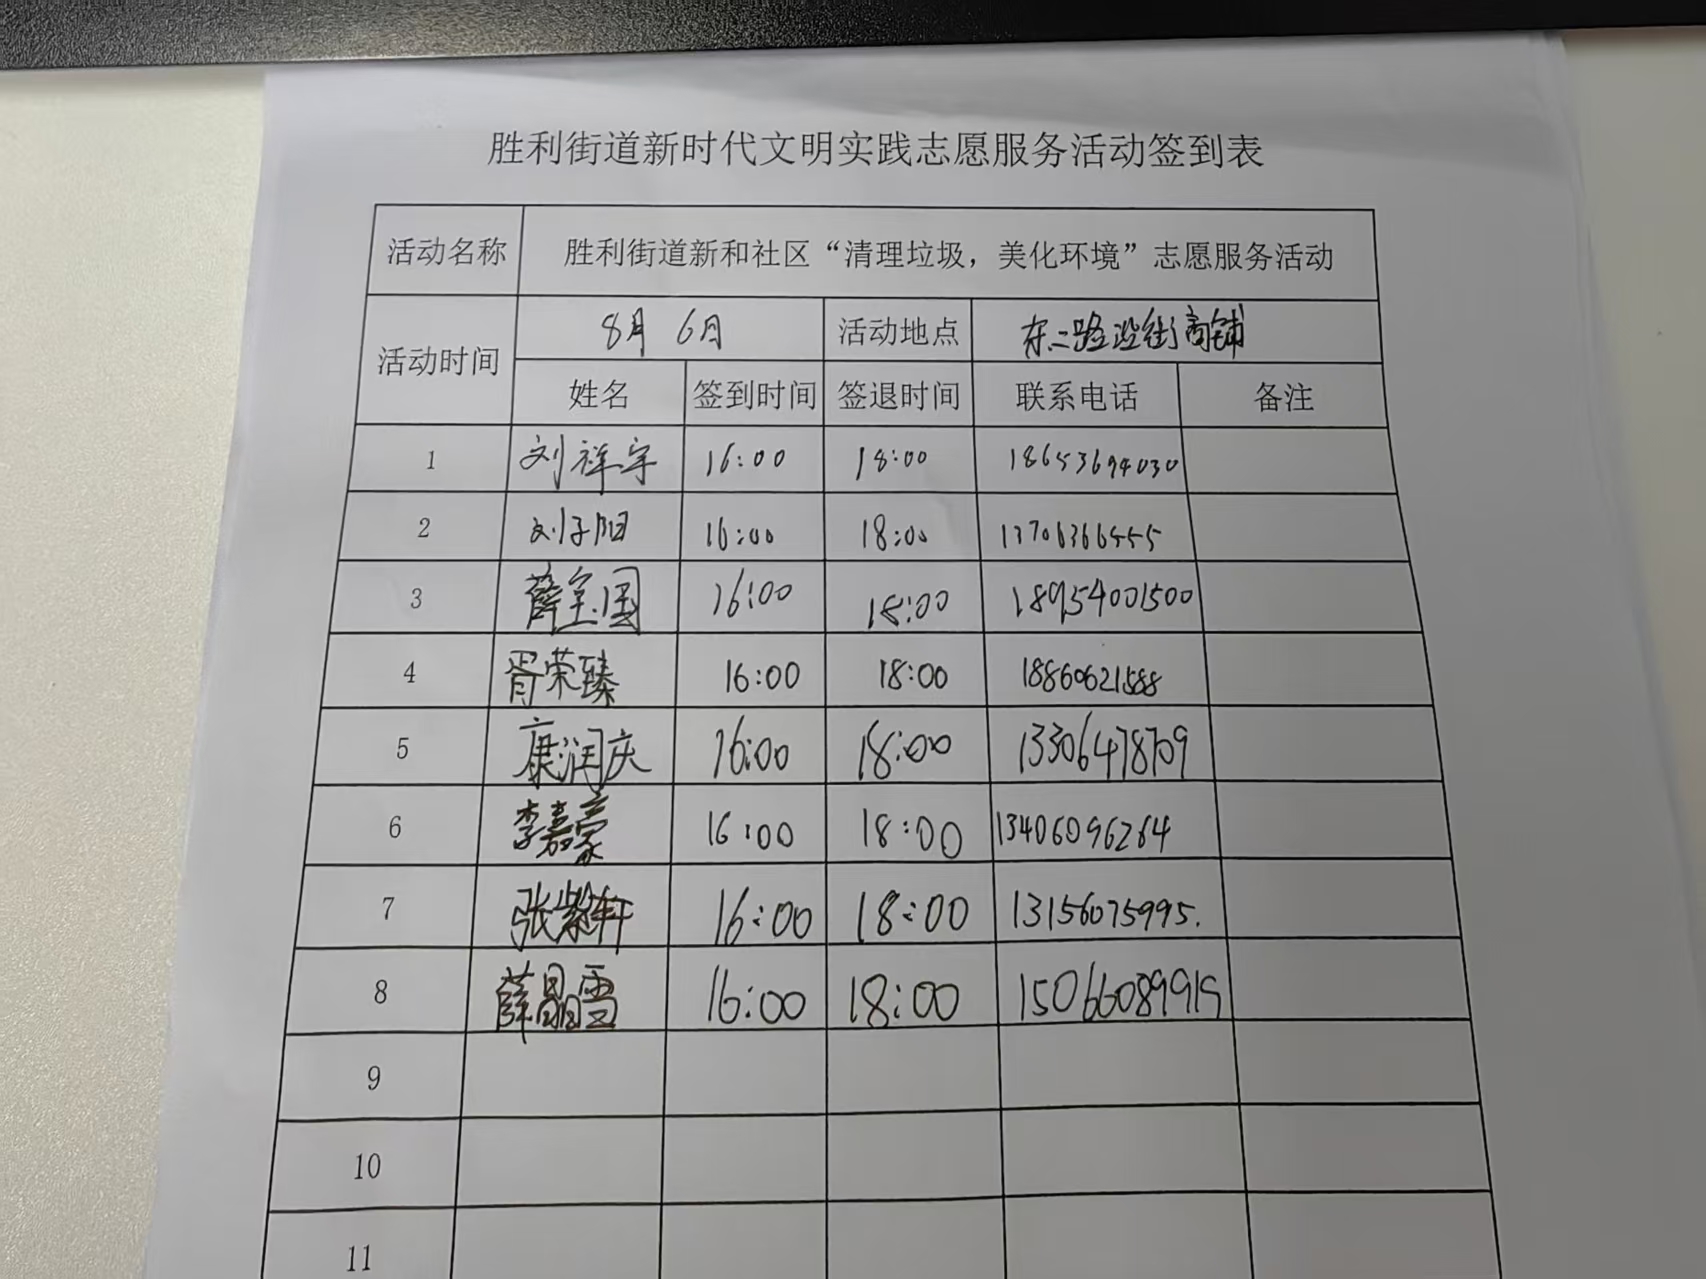 胜利街道新时代文明实践志愿服务活动签到表
活动名称 胜利街道新和社区“清理垃圾，美化环境”志愿服务活动
活动时间 8月 6日 活动地点 东二路沿街商铺
姓名 签到时间 签退时间 联系电话 备注
1 刘祥宇 16:00 18:00 18653694030
2 刘子阳 16:00 18:00 13706366555
3 薛宝国 16:00 18:00 18954001500
4 胥荣臻 16:00 18:00 18860621588
5 康润庆 16:00 18:00 13306478709
6 李嘉豪 16:00 18:00 13406096264
7 张紫轩 16:00 18:00 13156075995.
8 薛晶雪 16:00 18:00 15066089919
9
10
11